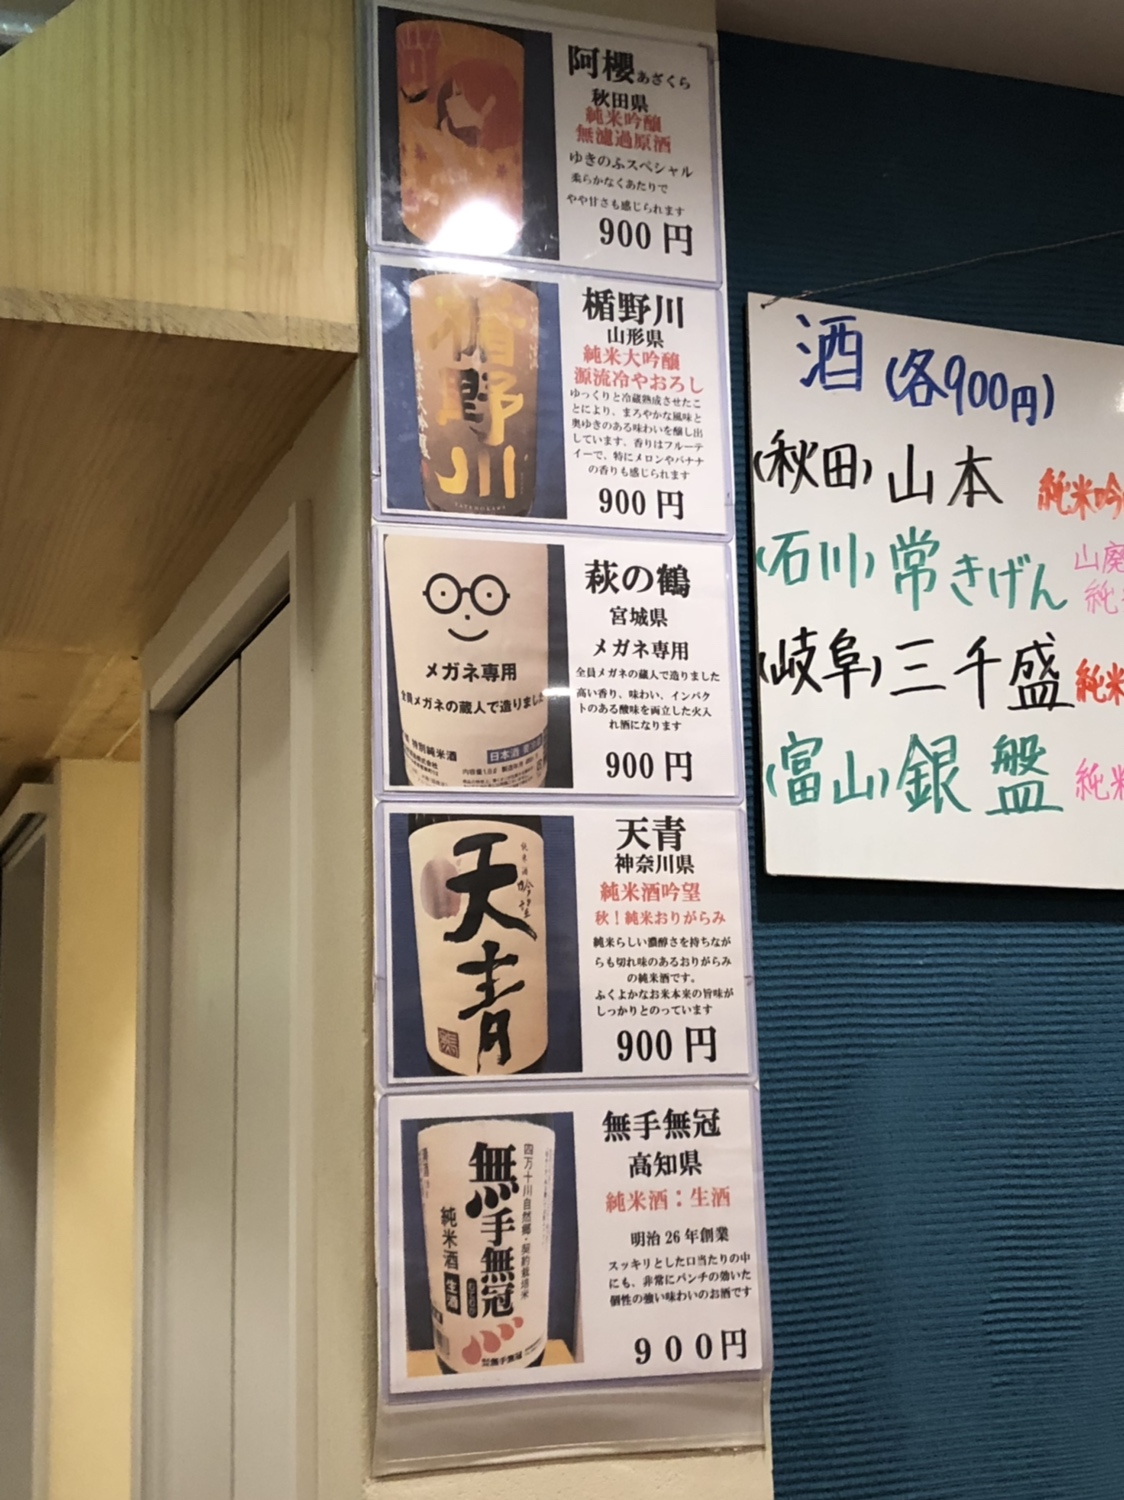 阿櫻 あざくら
秋田県
純米吟醸
無濾過原酒
ゆきのふスペシャル
柔らかなくあたりで
やや甘さも感じられます
900 円
楯野川
楯野川
山形県
純米大吟醸
源流冷やおろし
ゆっくりと冷蔵熟成させたこ
とにより、まろやかな風味と
奥ゆきのある味わいを醸し出
しています、香りはフルーテ
イーで、特にメロンやバナナ
の香りも感じられます
900 円
メガネ専用
全員メガネの蔵人で造りました
特別純米酒
日本酒
萩の鶴
宮城県
メガネ専用
全員メガネの蔵人で造りました
高い香り、味わい、インパク
トのある酸味を両立した火入
れ酒になります
900 円
天青
純米酒
天青
神奈川県
純米酒吟望
秋！純米おりがらみ
純米らしい濃醇さを持ちなが
らも切れ味のあるおりがらみ
の純米酒です。
ふくよかなお米本来の旨味が
しっかりとのっています
900 円
四万十川自然郷・契約栽培米
無手無冠
純米酒 生酒
無手無冠
無手無冠
高知県
純米酒：生酒
明治 26 年創業
スッキリとした口当たりの中
にも、非常にパンチの効いた
個性の強い味わいのお酒です
９００円
酒 (各900円)
(秋田) 山本 純米吟
(石川) 常きげん 山廃
純
(岐阜) 三千盛 純米
(富山) 銀盤 純米